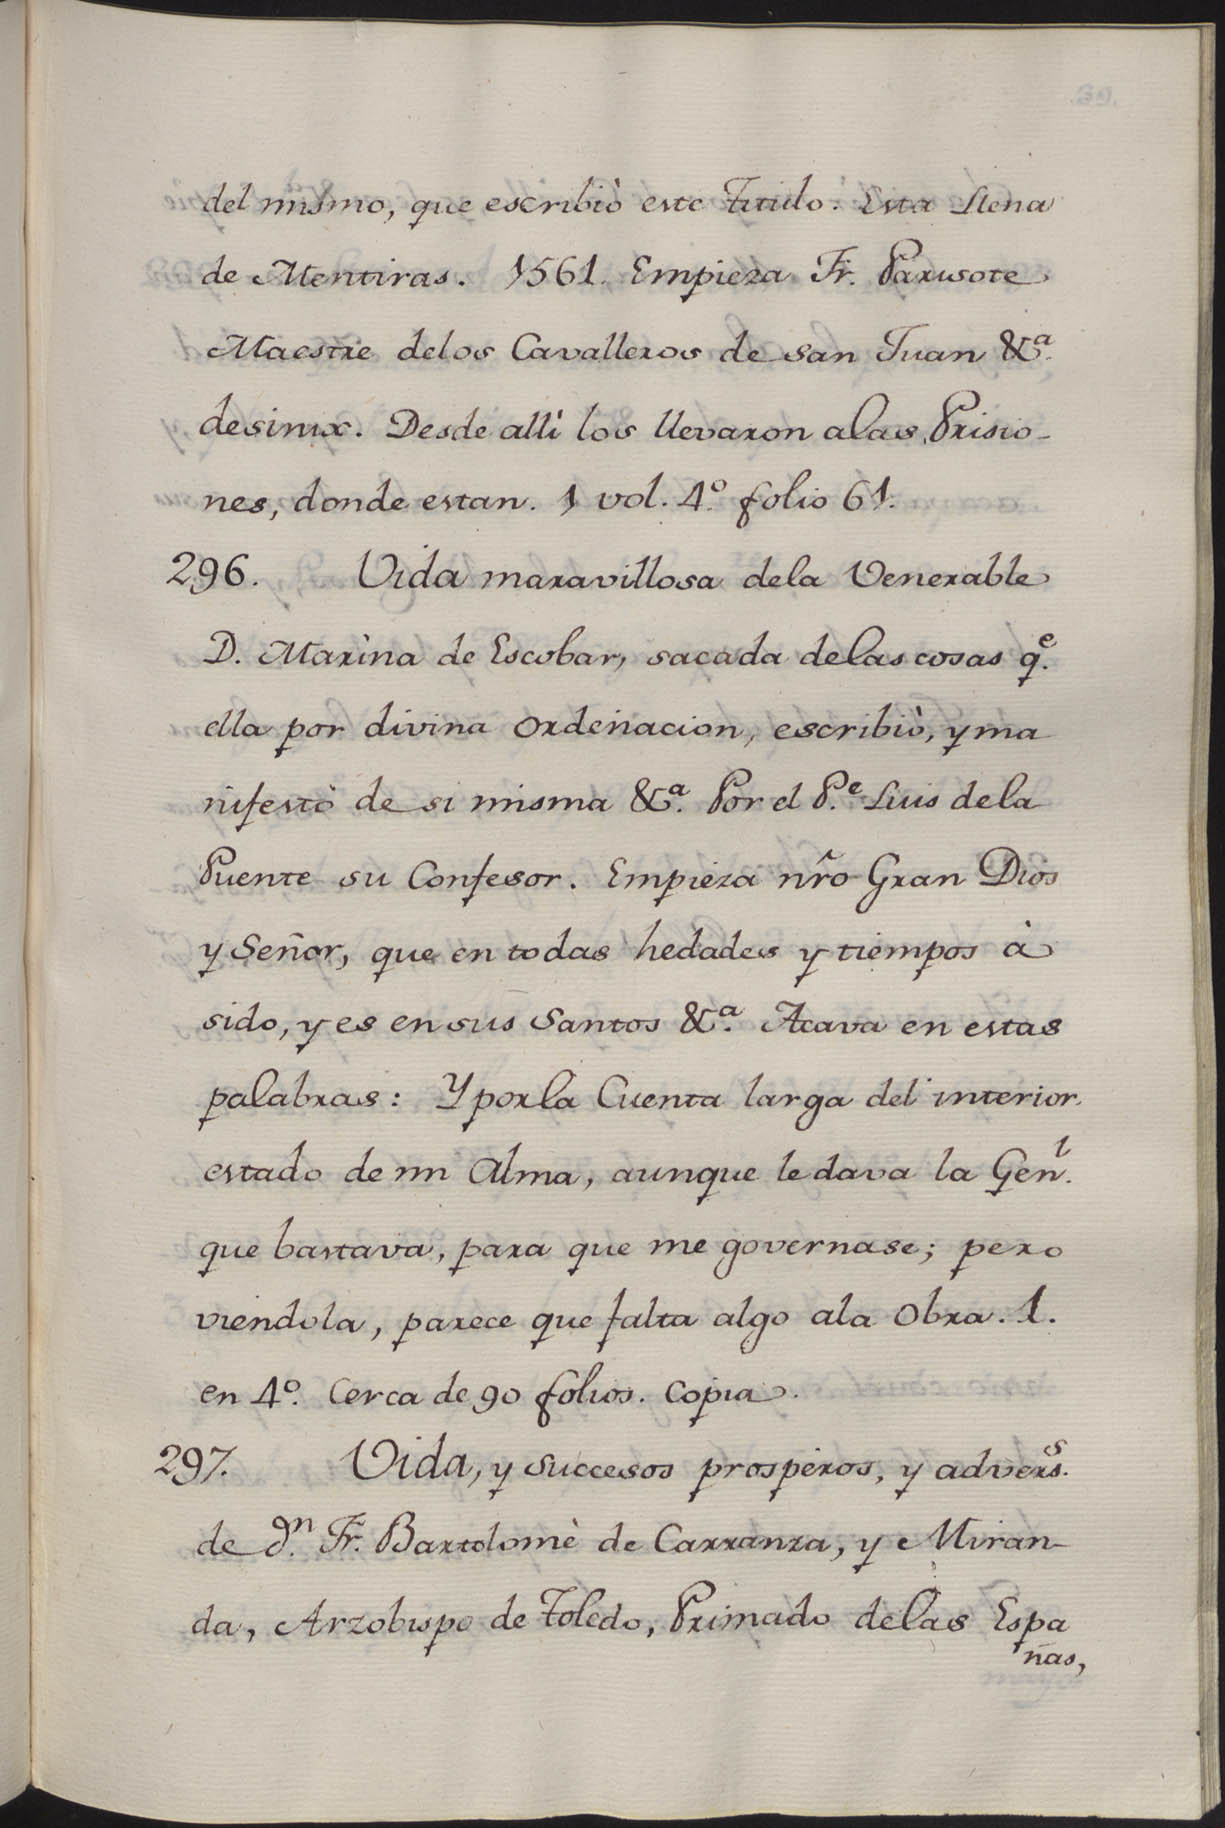 del mismo, que escribiò este Titulo. Esta Llena
de Mentiras. 1561. Empieza Fr. Parusote
Maestre delos Cavalleros de San Juan &ª.
desinix. Desde alli los llevaron alas Prisio-
nes, donde estan. 1 vol. 4º. folio 61.
296. Vida maravillosa dela Venerable
D. Marina de Escobar, sacada delas cosas qᵉ.
ella por divina ordenacion, escribiò, y ma
nifestò de si misma &ª. Por el P.ᵉ Luis dela
Puente su Confesor. Empieza nr̃o Gran Dios
y Señor, que en todas hedades y tiempos à
sido, y es en sus Santos &ª. Acava en estas
palabras: Y por la Cuenta larga del interior
estado de mi Alma, aunque le dava la Genˡ.
que bastava, para que me governase; pero
viendola, parece que falta algo ala Obra. 1.
en 4º. Cerca de 90 folios. Copia.
297. Vida, y succesos prosperos, y adversˢ.
de Dⁿ. Fr. Bartolomè de Carranza, y Miran-
da, Arzobispo de Toledo, Primado delas Espa
ñas,